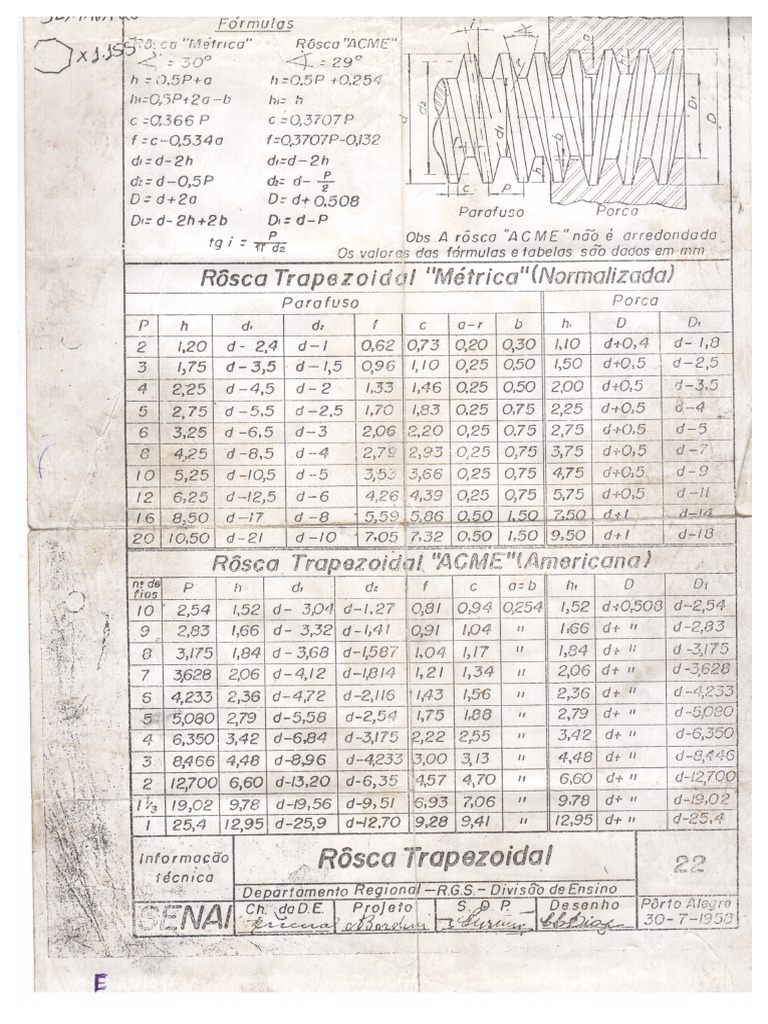 x 1.155
Fórmulas
Rôsca "Métrica" Rôsca "ACME"
= 30° = 29°
h = 0,5P+a h=0,5P+0,254
h1=0,5P+2a-b h1= h
c =0,366 P c =0,3707P
f =c-0,534a f=0,3707P-0,132
d1=d-2h d1=d-2h
d2=d-0,5P d2= d- P/2
D=d+2a D= d+0,508
D1=d-2h+2b D1=d-P
tg i = P/π d2
i
d2
d1
D1
D
f
c
P
h1
b
Parafuso Porca
Obs. A rôsca "ACME" não é arredondada
Os valores das fórmulas e tabelas são dados em mm
Rôsca Trapezoidal "Métrica"(Normalizada)
Parafuso Porca
P h d1 d2 f c a-r b h1 D D1
2 1,20 d- 2,4 d-1 0,62 0,73 0,20 0,30 1,10 d+0,4 d-1,8
3 1,75 d-3,5 d-1,5 0,96 1,10 0,25 0,50 1,50 d+0,5 d-2,5
4 2,25 d-4,5 d-2 1,33 1,46 0,25 0,50 2,00 d+0,5 d-3,5
5 2,75 d-5,5 d-2,5 1,70 1,83 0,25 0,75 2,25 d+0,5 d-4
6 3,25 d-6,5 d-3 2,06 2,20 0,25 0,75 2,75 d+0,5 d-5
8 4,25 d-8,5 d-4 2,79 2,93 0,25 0,75 3,75 d+0,5 d-7
10 5,25 d-10,5 d-5 3,53 3,66 0,25 0,75 4,75 d+0,5 d-9
12 6,25 d-12,5 d-6 4,26 4,39 0,25 0,75 5,75 d+0,5 d-11
16 8,50 d-17 d-8 5,59 5,86 0,50 1,50 7,50 d+1 d-14
20 10,50 d-21 d-10 7.05 7.32 0,50 1,50 9,50 d+1 d-18
Rôsca Trapezoidal "ACME"(Americana)
nº de fios P h d1 d2 f c a=b h1 D D1
10 2,54 1,52 d- 3,04 d-1,27 0,81 0,94 0,254 1,52 d+0,508 d-2,54
9 2,83 1,66 d- 3,32 d-1,41 0,91 1,04 " 1.66 d+ " d-2,83
8 3,175 1,84 d- 3,68 d-1,587 1,04 1,17 " 1,84 d+ " d-3,175
7 3,628 2,06 d-4,12 d-1,814 1,21 1,34 " 2,06 d+ " d-3,628
6 4,233 2,36 d-4,72 d-2,116 1,43 1,56 " 2,36 d+ " d-4,233
5 5,080 2,79 d-5,58 d-2,54 1,75 1.88 " 2,79 d+ " d-5,080
4 6,350 3,42 d-6,84 d-3,175 2,22 2,55 " 3,42 d+ " d-6,350
3 8,466 4,48 d-8,96 d-4,233 3,00 3,13 " 4,48 d+ " d-8,446
2 12,700 6,60 d-13,20 d-6,35 4,57 4,70 " 6,60 d+ " d-12,700
1 1/3 19,02 9,78 d-19,56 d-9,51 6,93 7,06 " 9.78 d+ " d-19,02
1 25,4 12,95 d-25,9 d-12,70 9,28 9,41 " 12,95 d+ " d-25,4
Informação
técnica
Rôsca Trapezoidal
22
Departamento Regional -R.G.S.- Divisão de Ensino
SENAI
Ch. da D.E. Projeto S. D.P. Desenho
Pôrto Alegre
30-7-1958
E